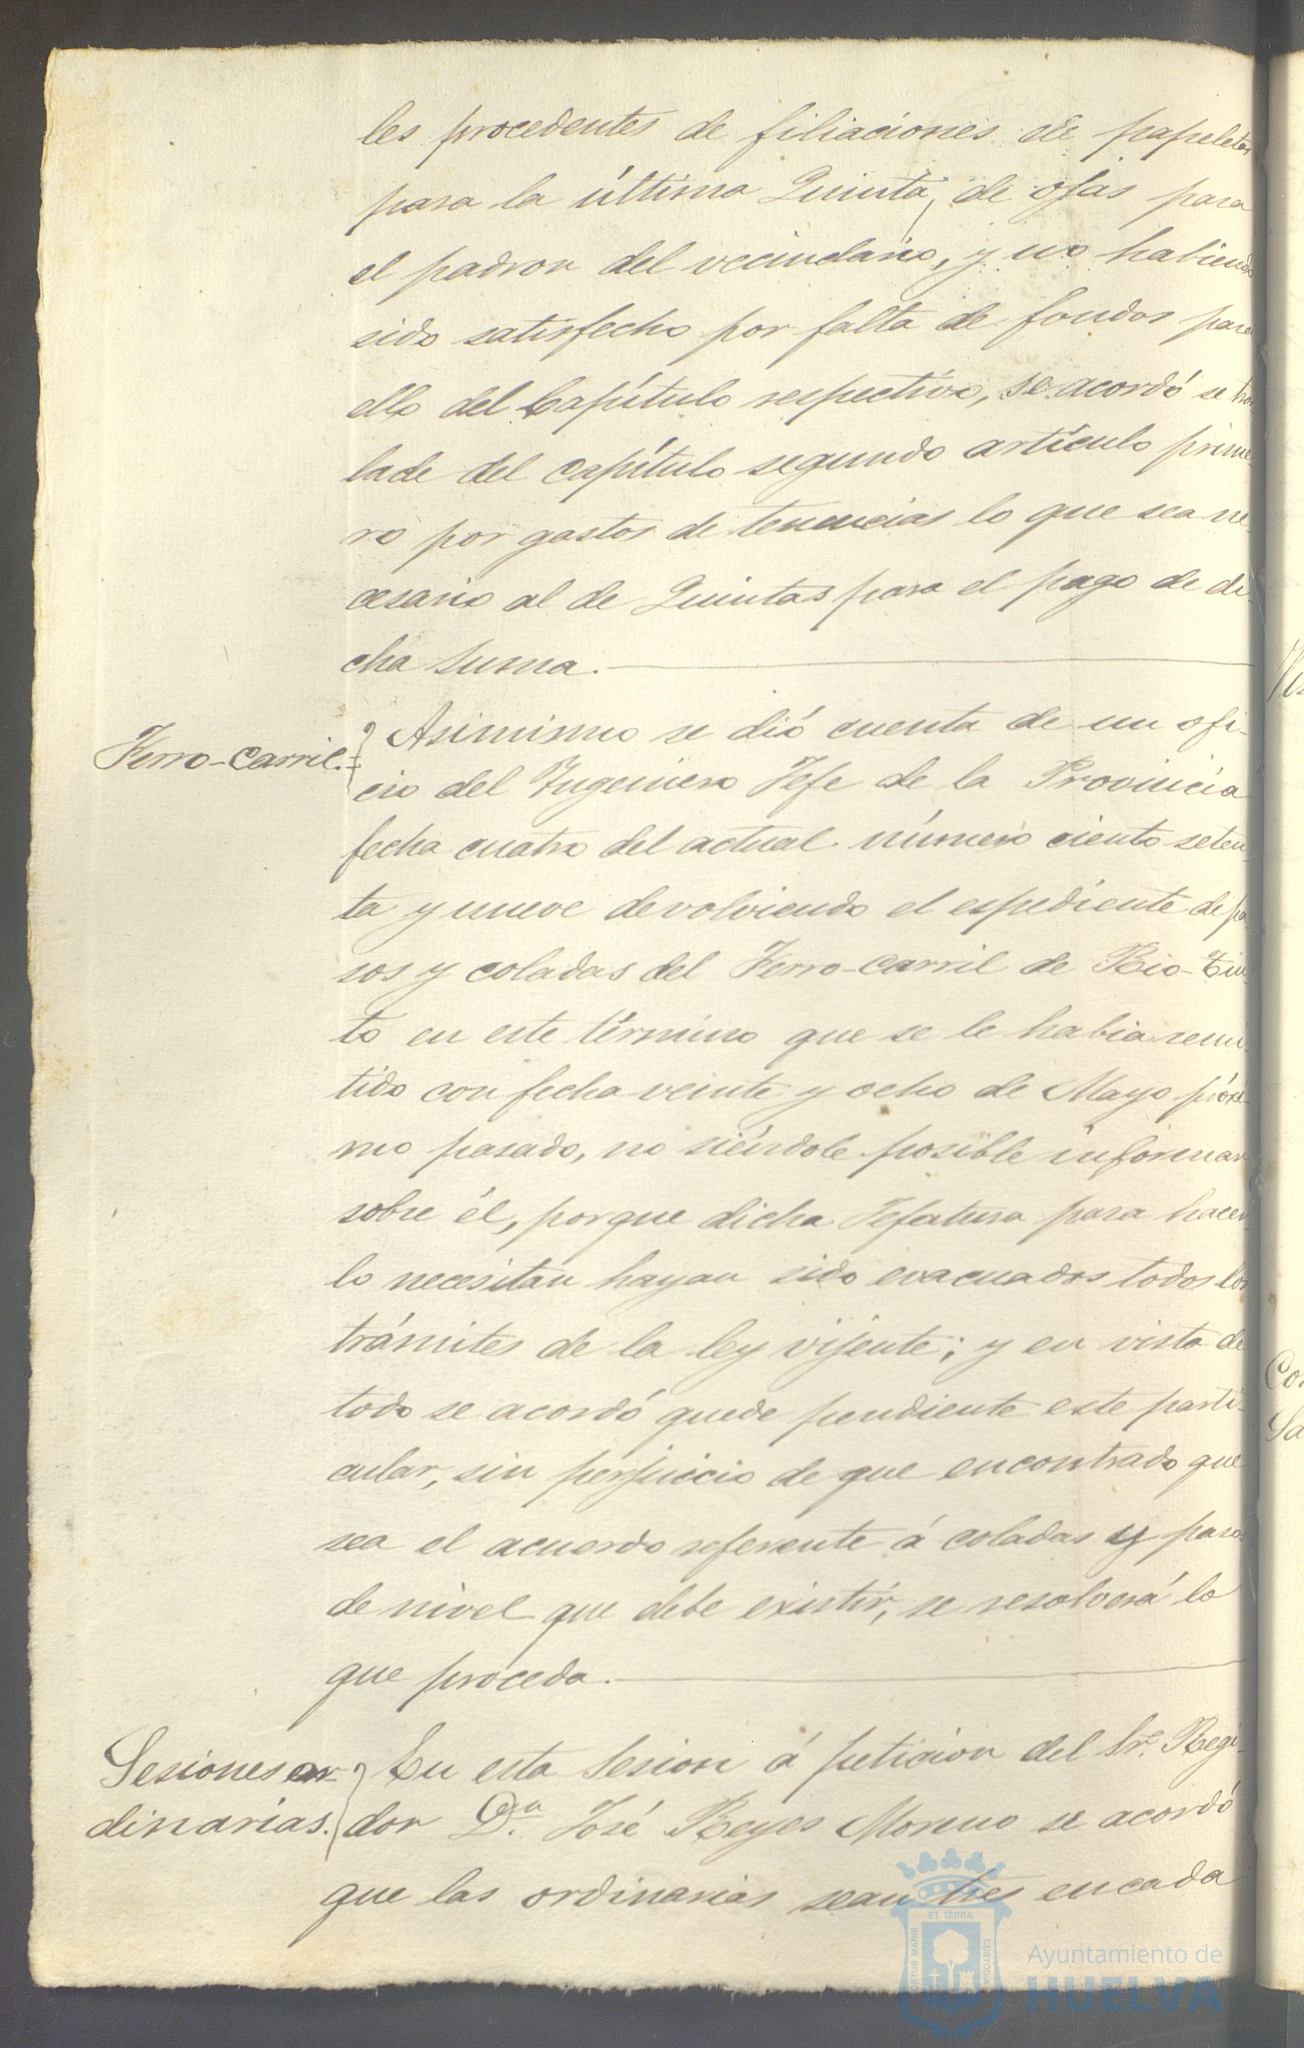 les procedentes de filiaciones de papeletas
para la última Quinta, de ojas para
el padron del vecindario, y no habiendo
sido satisfecho por falta de fondos para
ello del Capítulo respectivo, se acordó se tras
lade del capítulo segundo artículo prime-
ro por gastos de tenencias lo que sea ne-
cesario al de Quintas para el pago de di-
cha suma.
Ferro-carril.
Asimismo se dió cuenta de un ofi-
cio del Ingeniero Jefe de la Provincia
fecha cuatro del actual número ciento seten-
ta y nueve devolviendo el espediente de pa
sos y coladas del Ferro-carril de Rio-Tin-
to en este término que se le habia remi-
tido con fecha veinte y ocho de Mayo próxi-
mo pasado, no siéndole posible informar
sobre él, porque dicha Jefatura para hacer
lo necesitan hayan sido evacuados todos los
trámites de la ley vijente; y en vista de
todo se acordó quede pendiente este parti-
cular, sin perjuicio de que encontrado que
sea el acuerdo referente á coladas y pasos
de nivel que debe existir, se resolverá lo
que proceda.
Sesiones or-
dinarias.
En esta Sesion á peticion del Sr. Regi-
dor D.n José Reyes Moreno se acordó
que las ordinarias sean tres en cada
ET TERRÆ
PORTUS MARIS
CUSTODIA
Ayuntamiento de
HUELVA
Co
Sa